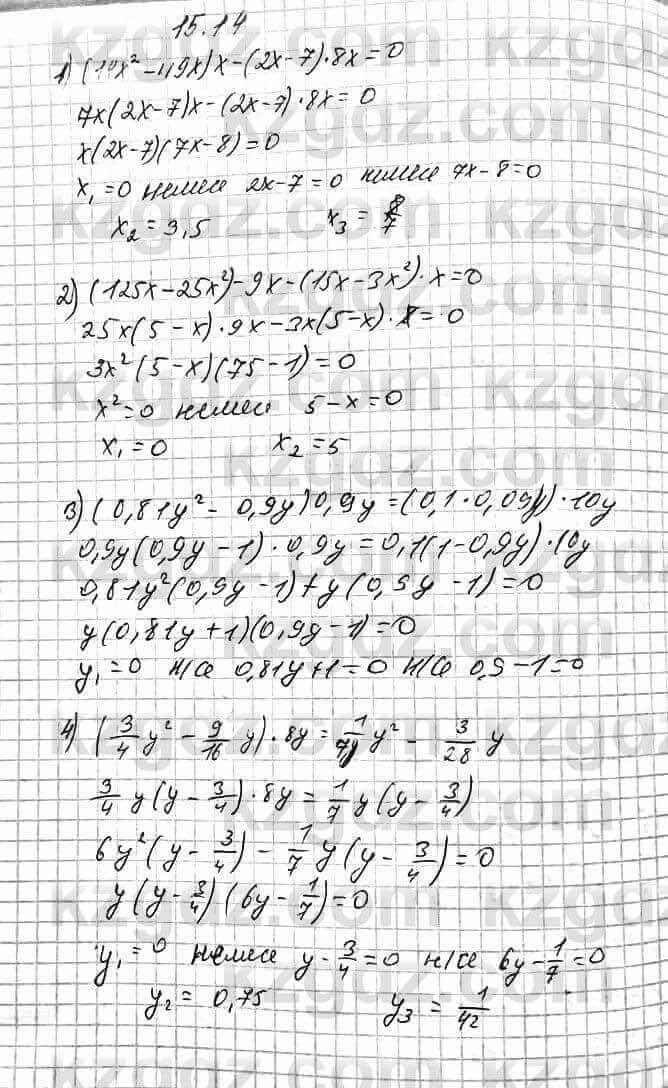 15.14
1) (14x² - 49x)x - (2x - 7)·8x = 0
7x(2x - 7)x - (2x - 7)·8x = 0
x(2x - 7)(7x - 8) = 0
x₁ = 0 немесе 2x - 7 = 0 немесе 7x - 8 = 0
x₂ = 3,5 x₃ = 8/7
2) (125x - 25x²) - 9x - (15x - 3x²)·x = 0
25x(5 - x)·9x - 3x(5 - x)·x = 0
3x²(5 - x)(75 - 1) = 0
x² = 0 немесе 5 - x = 0
x₁ = 0 x₂ = 5
3) (0,81y² - 0,9y)0,9y = (0,1·0,09y)·10y
0,9y(0,9y - 1)·0,9y = 0,1(1 - 0,9y)·10y
0,81y²(0,9y - 1) + y(0,9y - 1) = 0
y(0,81y + 1)(0,9y - 1) = 0
y₁ = 0 н/се 0,81y + 1 = 0 н/се 0,9 - 1 = 0
4) (3/4 y² - 9/16 y)·8y = 1/7 y² - 3/28 y
3/4 y(y - 3/4)·8y = 1/7 y(y - 3/4)
6y²(y - 3/4) - 1/7 y(y - 3/4) = 0
y(y - 3/4)(6y - 1/7) = 0
y₁ = 0 немесе y - 3/4 = 0 н/се 6y - 1/7 = 0
y₂ = 0,75 y₃ = 1/42
kzgdz.com